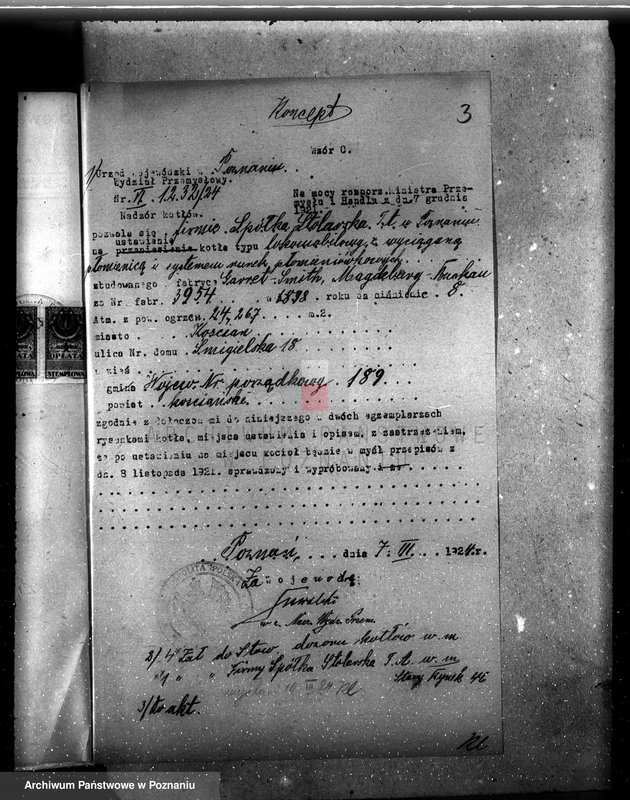 Koncept
3
Wzór C.
1/ Urząd Wojewódzki w Poznaniu.
Wydział Przemysłowy.
Nr. VI. 12.321/24
Na mocy rozporz. Ministra Prze-
mysłu i Handlu z dn. 7 grudnia
Nadzór kotłów.
pozwala się firmie Spółka Stolarska T.A. w Poznaniu
ustawienie
na przeniesienie kotła typu lokomobilowy z wyciąganą
płomienicą i systemem rurek płomieniówkowych
zbudowanego fabryce Garret-Smith, Magdeburg-Buckau
za Nr. fabr. 3954 w 1898 roku na ciśnienie 8.
Atm. z pow. ogrzew. 24,267 m.2.
miasto Kościan
ulica Nr. domu Śmigielska 18
gmina Wojew. Nr porządkowy 189
powiat kościański
zgodnie z dołączonymi do niniejszego w dwóch egzemplarzach
rysunkami kotła, miejsca ustawienia i opisem, z zastrzeżeniem,
że po ustawieniu na miejscu kocioł będzie w myśl przepisów z
dn. 8 listopada 1921. sprawdzony i wypróbowany
Poznań, dnia 7. VI. 1924.r.
Za Wojewodę:
Nacz. Wydz. Przem.
2/ 4 Zał. do Stow. dozoru kotłów w m
" 1 " " Firmy Spółka Stolarska T.A. w m
Stary Rynek 44
3/ do akt.
OPŁATA
STEMPLOWA
OPŁATA
STEMPLOWA
Archiwum Państwowe w Poznaniu